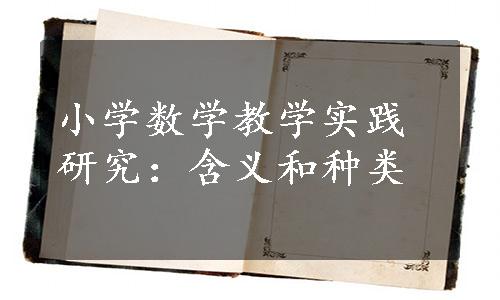 小学数学教学实践
研究：含义和种类